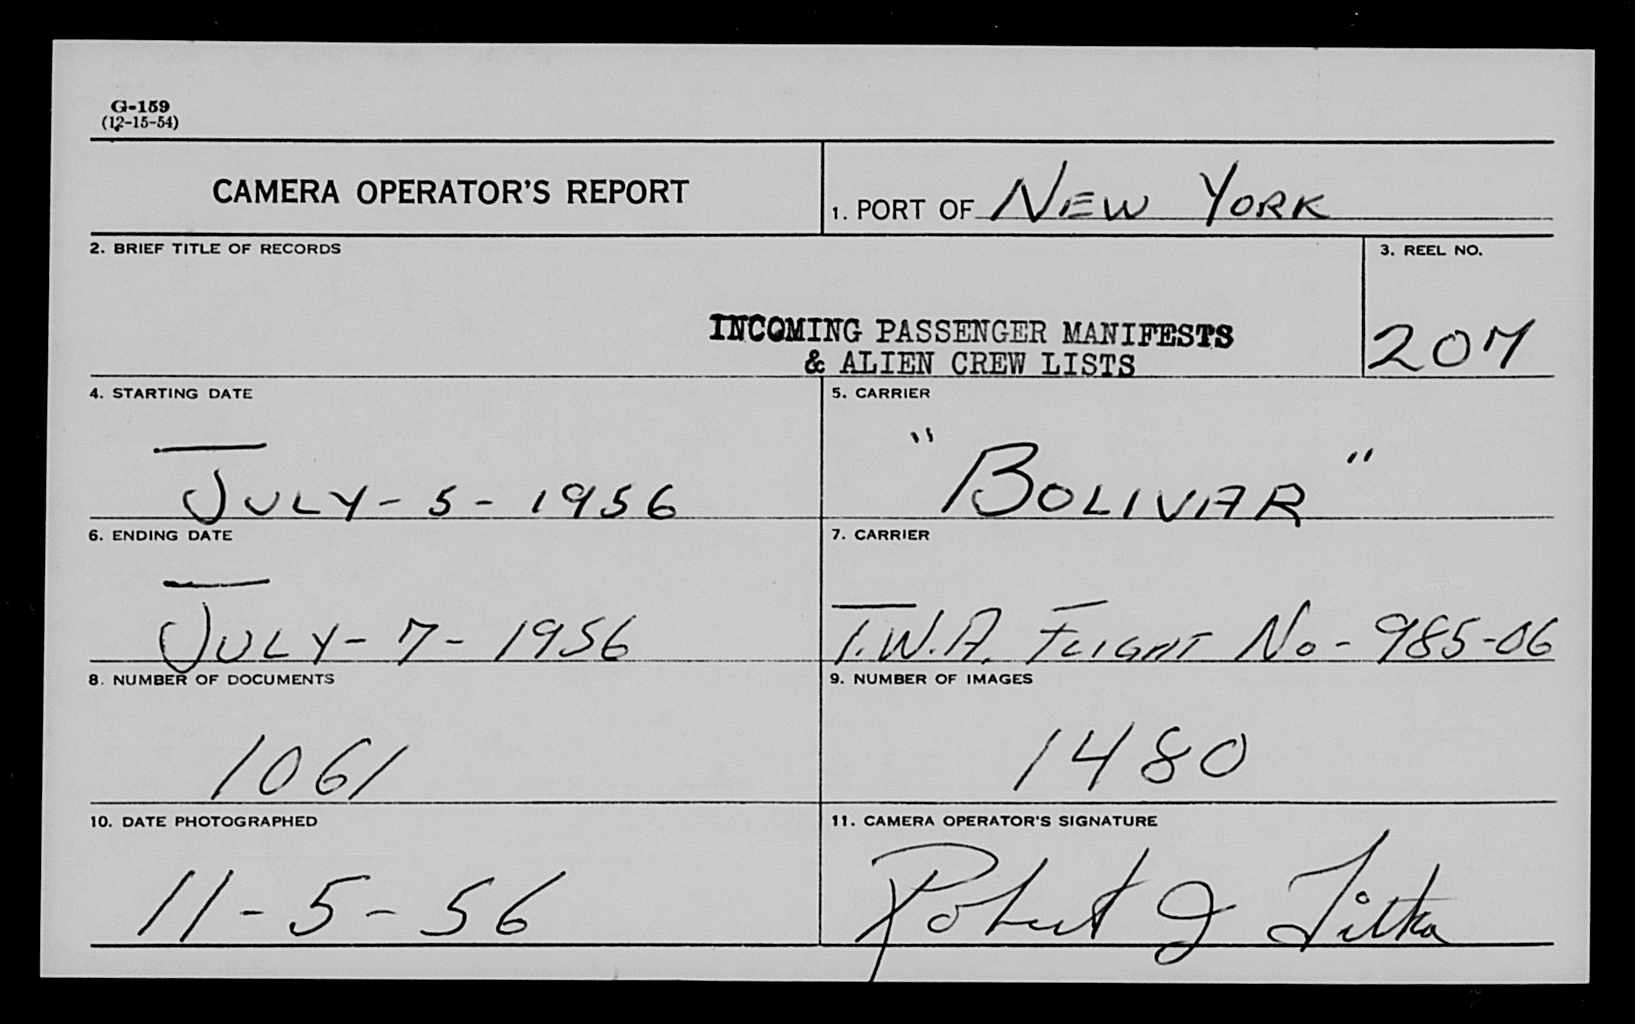 G-159
(12-15-54)
CAMERA OPERATOR'S REPORT
1. PORT OF NEW YORK
2. BRIEF TITLE OF RECORDS
3. REEL NO.
INCOMING PASSENGER MANIFESTS
& ALIEN CREW LISTS
207
4. STARTING DATE
5. CARRIER
JULY-5-1956
"BOLIVAR"
6. ENDING DATE
7. CARRIER
JULY-7-1956
T.W.A. FLIGHT No-985-06
8. NUMBER OF DOCUMENTS
9. NUMBER OF IMAGES
1061
1480
10. DATE PHOTOGRAPHED
11. CAMERA OPERATOR'S SIGNATURE
11-5-56
Robert J